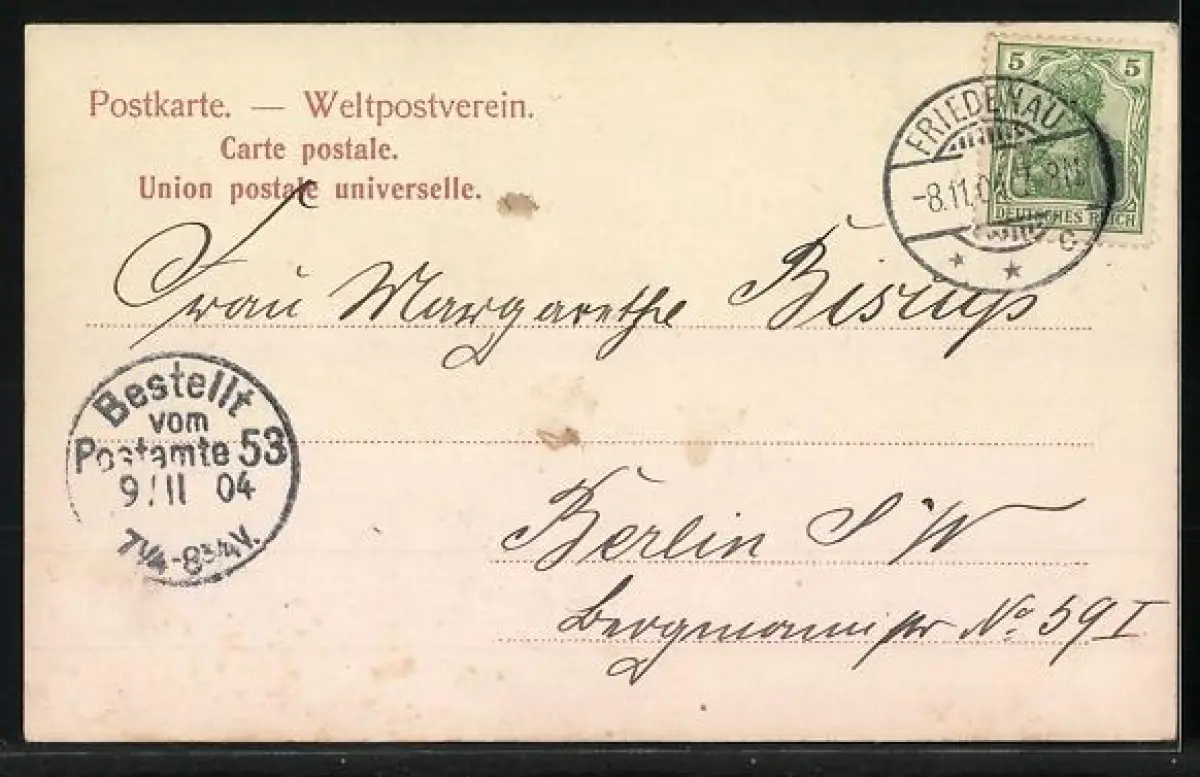 Postkarte. — Weltpostverein.
Carte postale.
Union postale universelle.
5 5
DEUTSCHES REICH
FRIEDENAU
-8.11.04 7-8N
* * c
Frau Margarethe Biscup
Bestellt
vom
Postamte 53
9/11 04
7¼-8¾V.
Berlin SW
Bergmannstr No 59 I